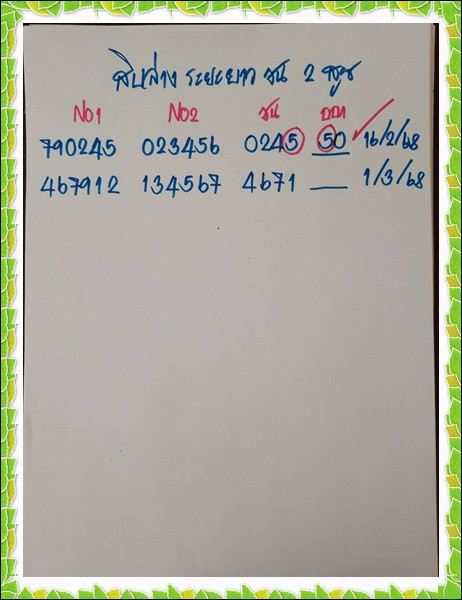 สิบล่าง ระยะยาว ชน 2 ชุด
NO1 NO2 ชน ออก
790245 023456 0245 50 16/2/68
467912 134567 4671 __ 1/3/68